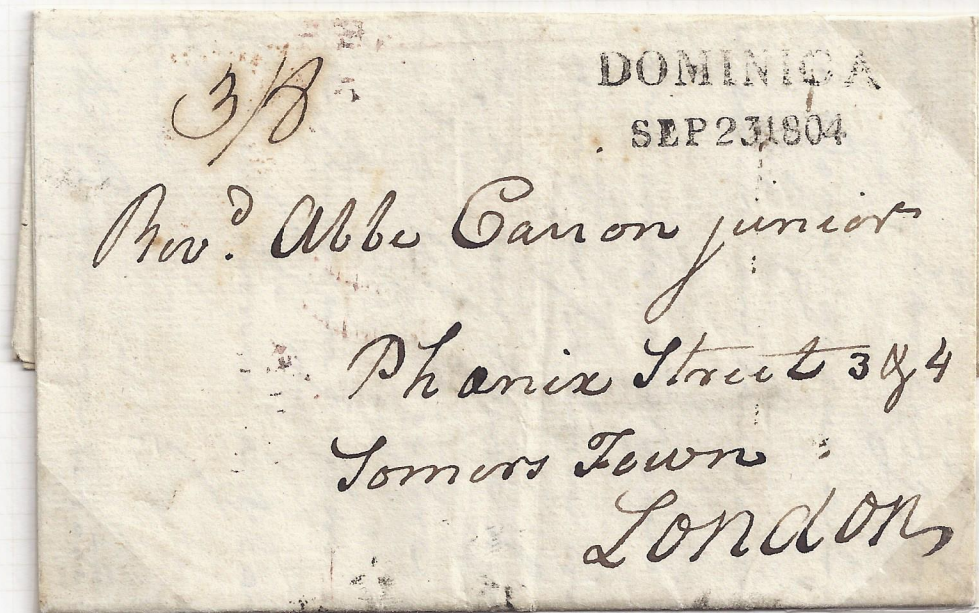 3/8
DOMINICA
SEP 23 1804
Revd. Abbe Carron junior
Phœnix Street 3 & 4
Somers Town
London